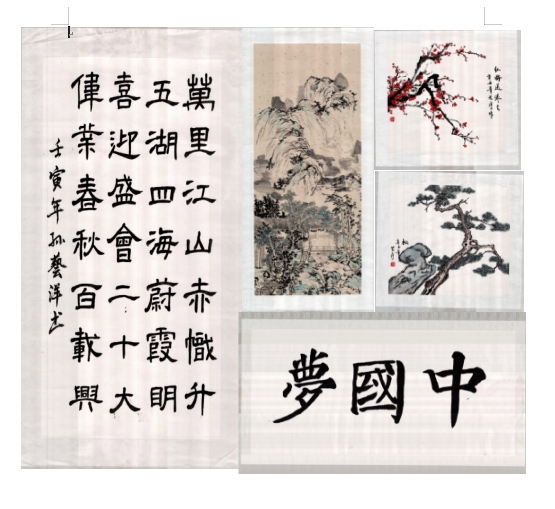 萬里江山赤幟升
五湖四海蔚霞明
喜迎盛會二十大
偉業春秋百載興
壬寅年孫藝洋書
中國夢